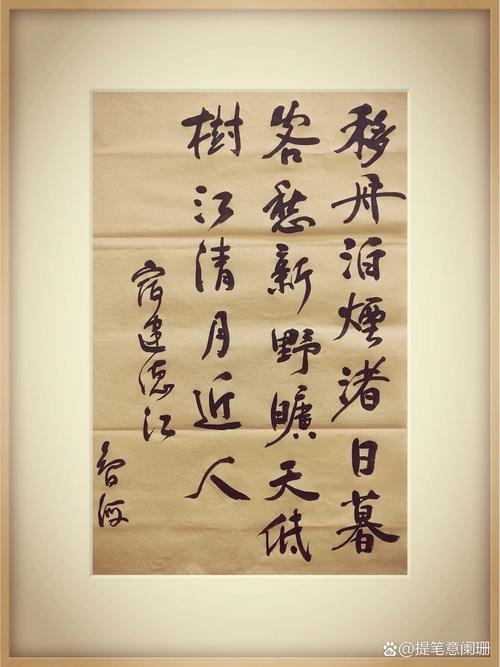 移舟泊煙渚日暮
客愁新野曠天低
樹江清月近人
宿建德江
智河
@提笔意阑珊